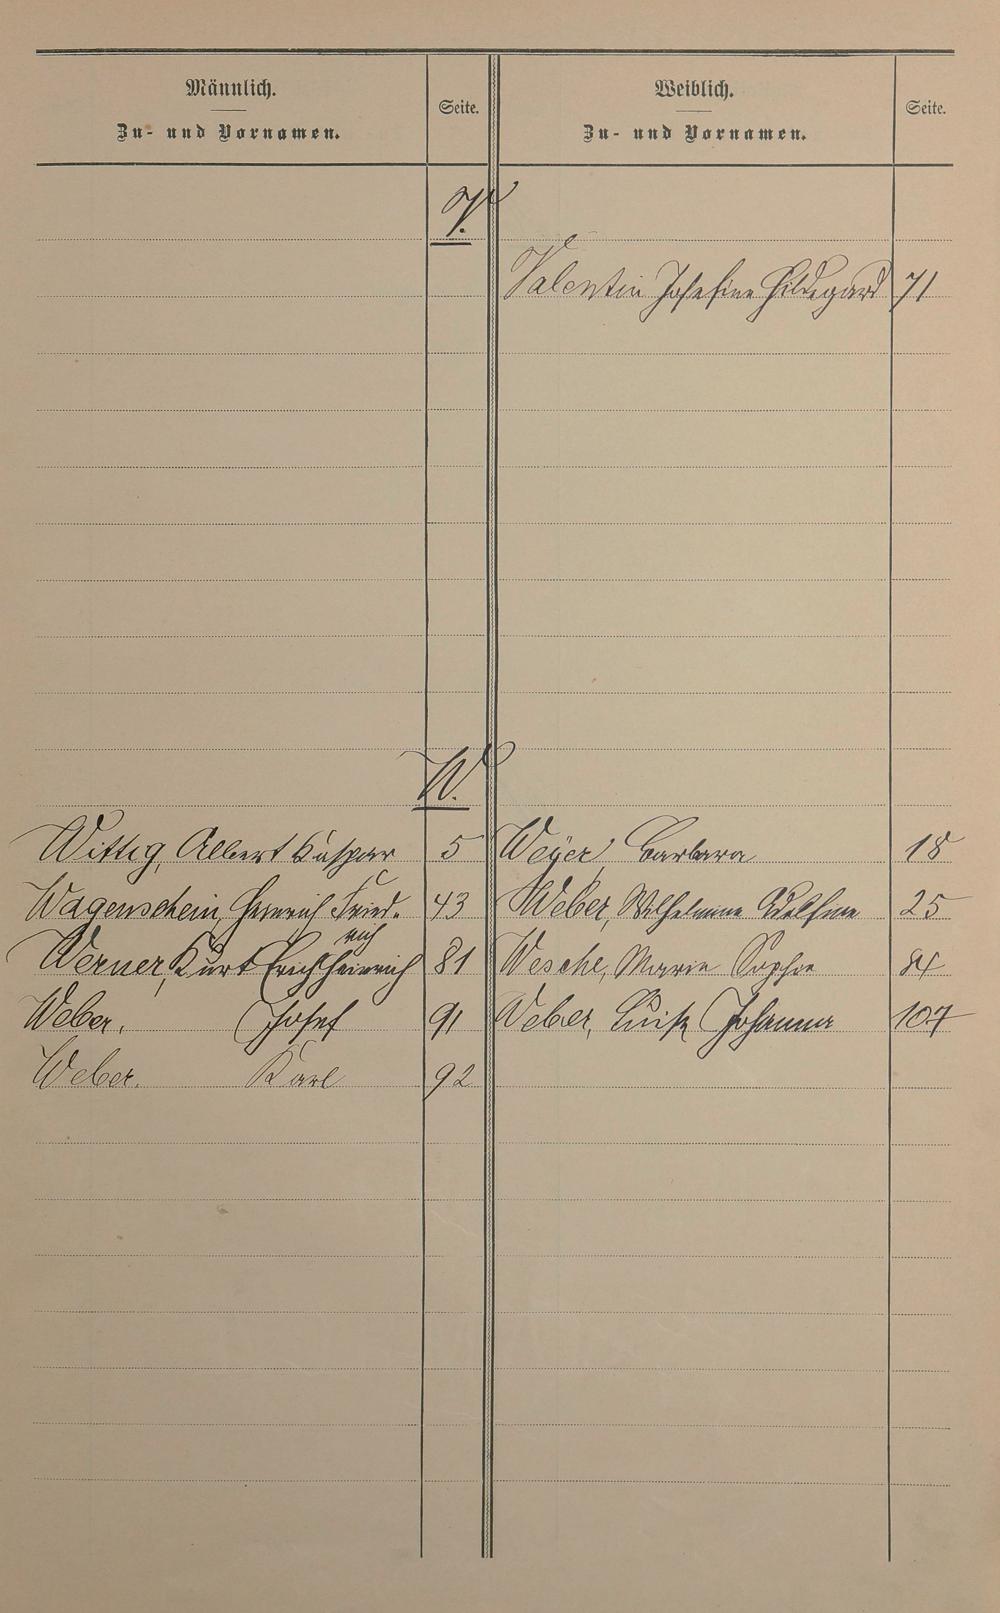 Männlich.
Zu- und Vornamen.
Seite.
Weiblich.
Zu- und Vornamen.
Seite.
V.
Valentin Josefine Hildegard 71
W.
Wittig, Albert Kaspar 5
Weyer, Barbara 18
Wagenschein, Heinrich Fried- 43
rich
Weber, Wilhelmine 25
Werner, Kurt Erich Heinrich 81
Wesche, Marie Sophie 84
Weber, Josef 91
Weber, Luise Johanna 107
Weber. Karl 92